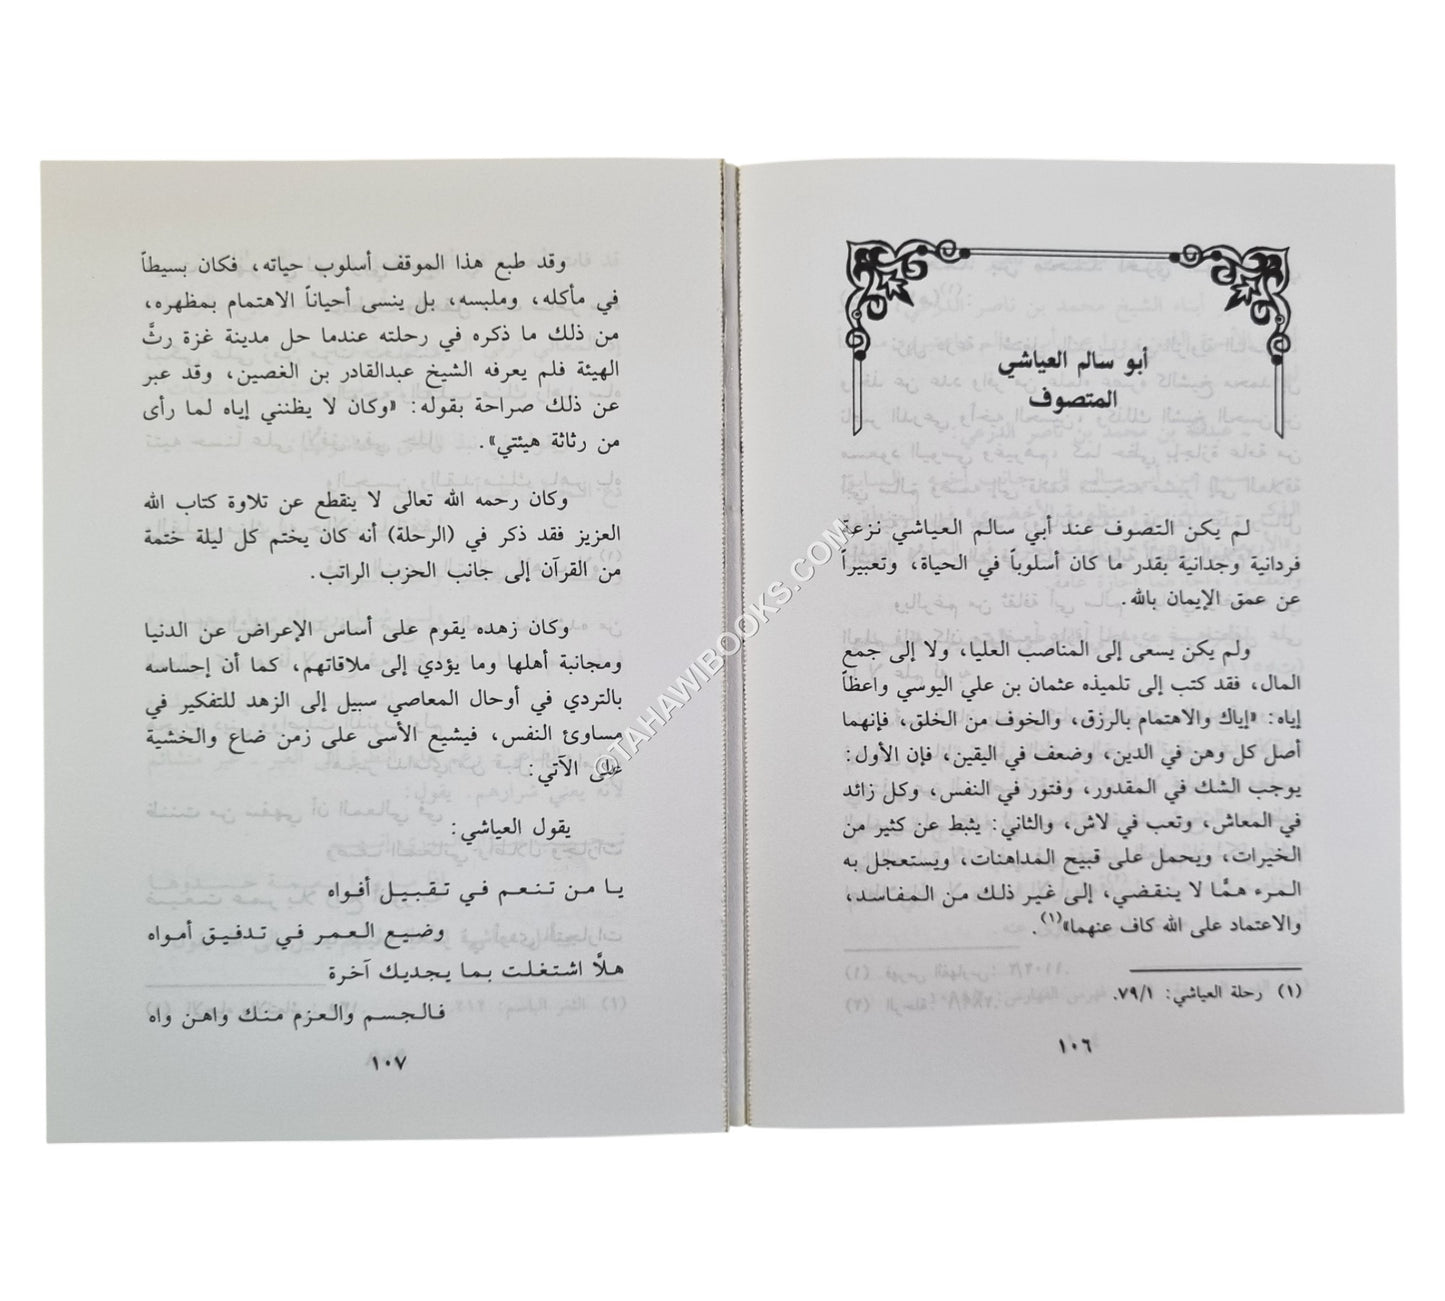 أبو سالم العياشي
المتصوف
لم يكن التصوف عند أبي سالم العياشي نزعة
فردانية وجدانية بقدر ما كان أسلوباً في الحياة، وتعبيراً
عن عمق الإيمان بالله.
ولم يكن يسعى إلى المناصب العليا، ولا إلى جمع
المال، فقد كتب إلى تلميذه عثمان بن علي اليوسي واعظاً
إياه: «إياك والاهتمام بالرزق، والخوف من الخلق، فإنهما
أصل كل وهن في الدين، وضعف في اليقين، فإن الأول:
يوجب الشك في المقدور، وفتور في النفس، وكل زائد
في المعاش، وتعب في لاش، والثاني: يثبط عن كثير من
الخيرات، ويحمل على قبيح المداهنات، ويستعجل به
المرء همًّا لا ينقضي، إلى غير ذلك من المفاسد،
والاعتماد على الله كاف عنهما»(١).
(١) رحلة العياشي: ٧٩/١.
١٠٦
وقد طبع هذا الموقف أسلوب حياته، فكان بسيطاً
في مأكله، وملبسه، بل ينسى أحياناً الاهتمام بمظهره،
من ذلك ما ذكره في رحلته عندما حل مدينة غزة رثَّ
الهيئة فلم يعرفه الشيخ عبدالقادر بن الغصين، وقد عبر
عن ذلك صراحة بقوله: «وكان لا يظنني إياه لما رأى
من رثاثة هيئتي».
وكان رحمه الله تعالى لا ينقطع عن تلاوة كتاب الله
العزيز فقد ذكر في (الرحلة) أنه كان يختم كل ليلة ختمة
من القرآن إلى جانب الحزب الراتب.
وكان زهده يقوم على أساس الإعراض عن الدنيا
ومجانبة أهلها وما يؤدي إلى ملاقاتهم، كما أن إحساسه
بالتردي في أوحال المعاصي سبيل إلى الزهد للتفكير في
مساوئ النفس، فيشيع الأسى على زمن ضاع والخشية
على الآتي:
يقول العياشي:
يا من تنعم في تقبيل أفواه
وضيع العمر في تدفيق أمواه
هلَّا اشتغلت بما يجديك آخرة
فالجسم والعزم منك واهن واه
١٠٧
©TAHAWIBOOKS.COM